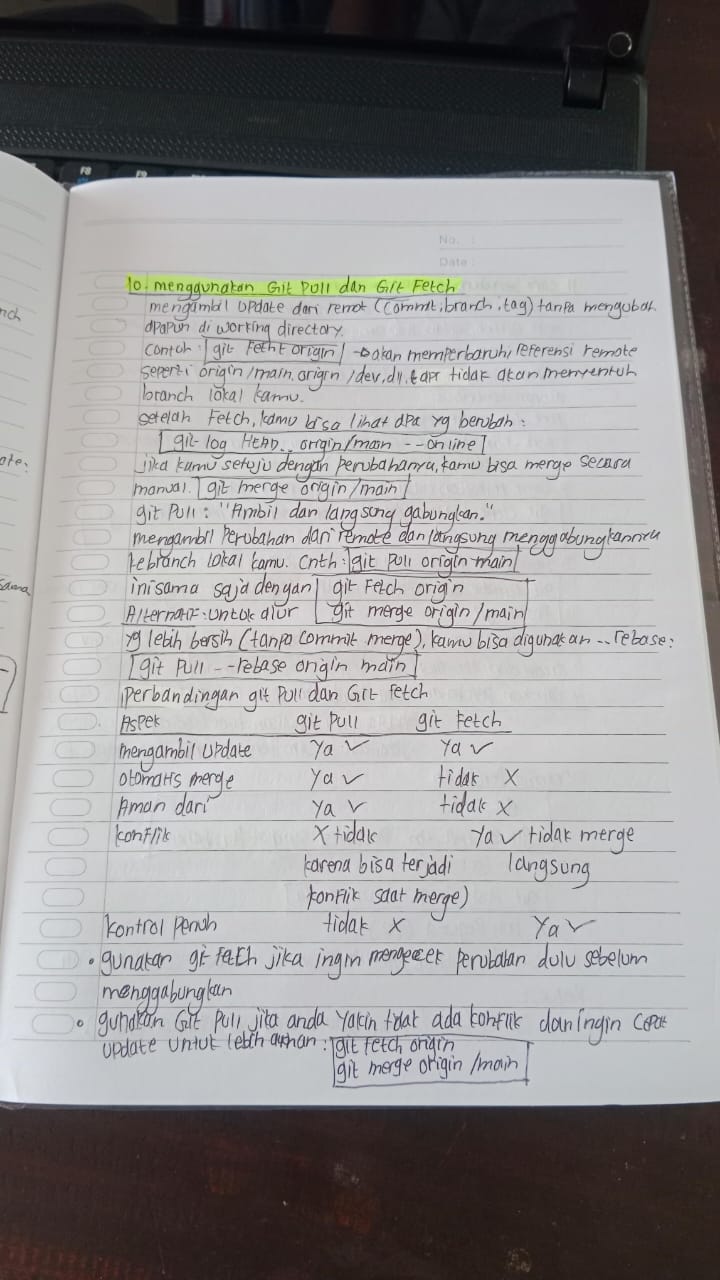 No. :
Date :
10. menggunakan Git Pull dan Git Fetch
mengambil update dari remot (commit, branch, tag) tanpa mengubah
apapun di working directory.
contoh : git fetht origin → akan memperbaruhi, referensi remote
seperti origin/main, origin/dev, dll, tapi tidak akan menyentuh
branch lokal kamu.
setelah Fetch, kamu bisa lihat apa yg berubah :
git log HEAD.. origin/main --online
jika kamu setuju dengan perubahannya, kamu bisa merge secara
manual. git merge origin/main
git Pull : "Ambil dan langsung gabungkan."
mengambil perubahan dari remote dan langsung menggabungkannya
ke branch lokal kamu. Cnth : git pull origin main
ini sama saja dengan git Fetch origin
Alternatif : Untuk alur git merge origin/main
yg lebih bersih (tanpa commit merge), kamu bisa digunakan --rebase :
git pull --rebase origin main
perbandingan git Pull dan Git fetch
Aspek git pull git fetch
mengambil update Ya ✓ Ya ✓
otomatis merge Ya ✓ tidak X
Aman dari Ya ✓ tidak X
konflik X tidak Ya ✓ tidak merge
karena bisa terjadi langsung
konflik saat merge)
kontrol penuh tidak X Ya ✓
• gunakan git fetch jika ingin mengecek perubahan dulu sebelum
menggabungkan
• gunakan Git Pull jika anda yakin tidak ada konflik dan ingin cepat
update untuk lebih aman : git fetch origin
git merge origin/main
nch
ate:
sama
F8
F9